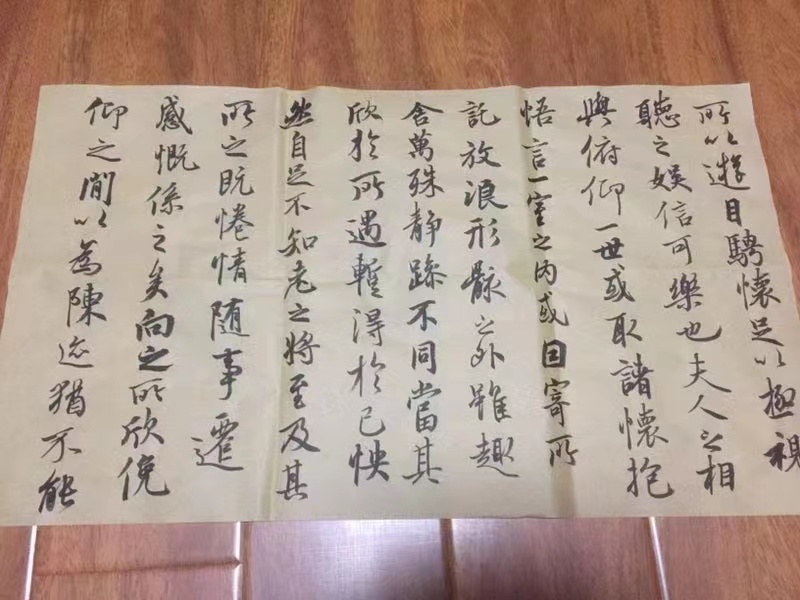 所以遊目騁懷足以極視
聽之娛信可樂也夫人之相
與俯仰一世或取諸懷抱
悟言一室之內或因寄所
託放浪形骸之外雖趣
舍萬殊静躁不同當其
欣於所遇暫得於己怏
然自足不知老之將至及其
所之既惓情隨事遷
感慨係之矣向之所欣俛
仰之閒以為陳迹猶不能